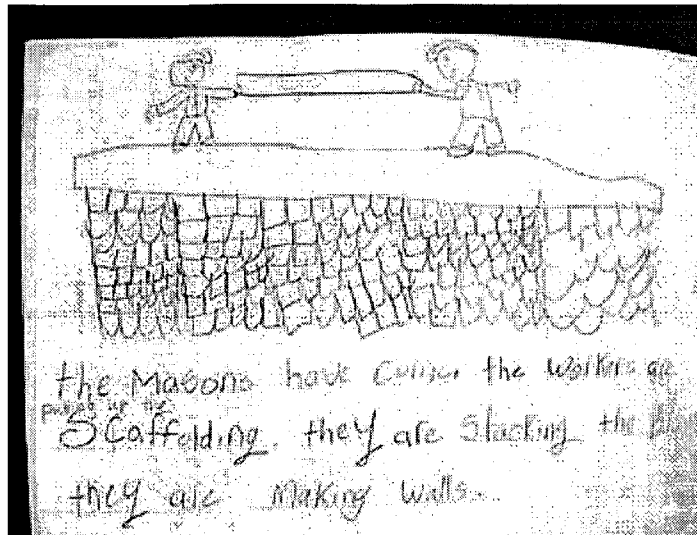 the Masons have the workers are
puting up the
Scaffolding. they are Stacking the
they are Making Walls.